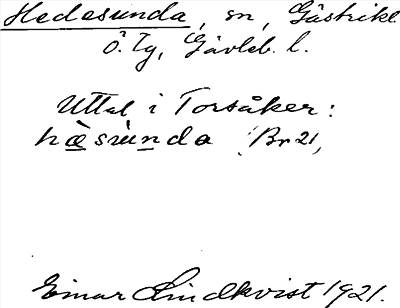 Hedesunda, sn, Gästrikl.
Ö. Tg, Gävleb. l.
Uttal i Torsåker:
hæ̀sùnda Br 21,
Einar Lindkvist 1921.